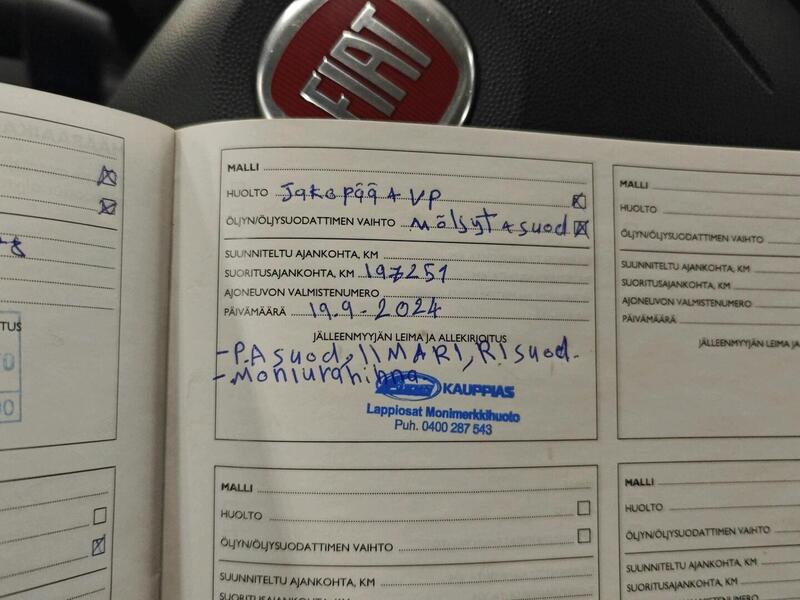 FIAT
MALLI
HUOLTO Jakopää + VP
ÖLJYN/ÖLJYSUODATTIMEN VAIHTO Möljyt + suod
SUUNNITELTU AJANKOHTA, KM
SUORITUSAJANKOHTA, KM 197251
AJONEUVON VALMISTENUMERO
PÄIVÄMÄÄRÄ 19.9-2024
JÄLLEENMYYJÄN LEIMA JA ALLEKIRJOITUS
-P.A suod, IIMARI, RI suod.
-Moniurahihna
KAUPPIAS
Lappiosat Monimerkkihuoto
Puh. 0400 287 543
MALLI
HUOLTO
ÖLJYN/ÖLJYSUODATTIMEN VAIHTO
SUUNNITELTU AJANKOHTA, KM
SUORITUSAJANKOHTA, KM
MALLI
HUOLTO
ÖLJYN/ÖLJYSUODATTIMEN VAIHTO
SUUNNITELTU AJANKOHTA, KM
SUORITUSAJANKOHTA, KM
AJONEUVON VALMISTENUMERO
PÄIVÄMÄÄRÄ
JÄLLEENMYYJÄN LEIMA
MALLI
HUOLTO
ÖLJYN/ÖLJYSUODATTIMEN VAIHTO
SUUNNITELTU AJANKOHTA, KM
SUORITUSAJANKOHTA, KM